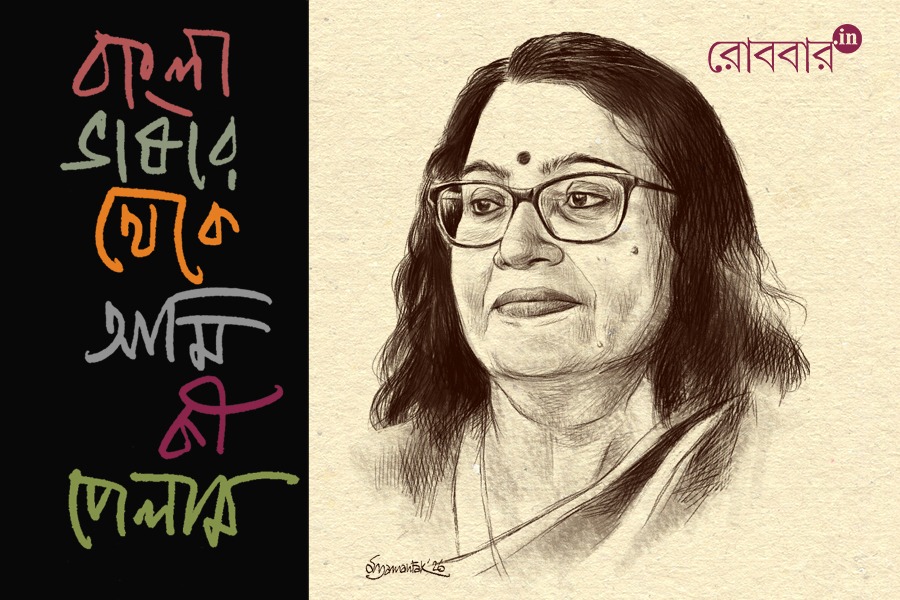 বাংলা
ভাষার
থেকে
আমি
কী
পেলাম
রোববার.in
Syamantak '26